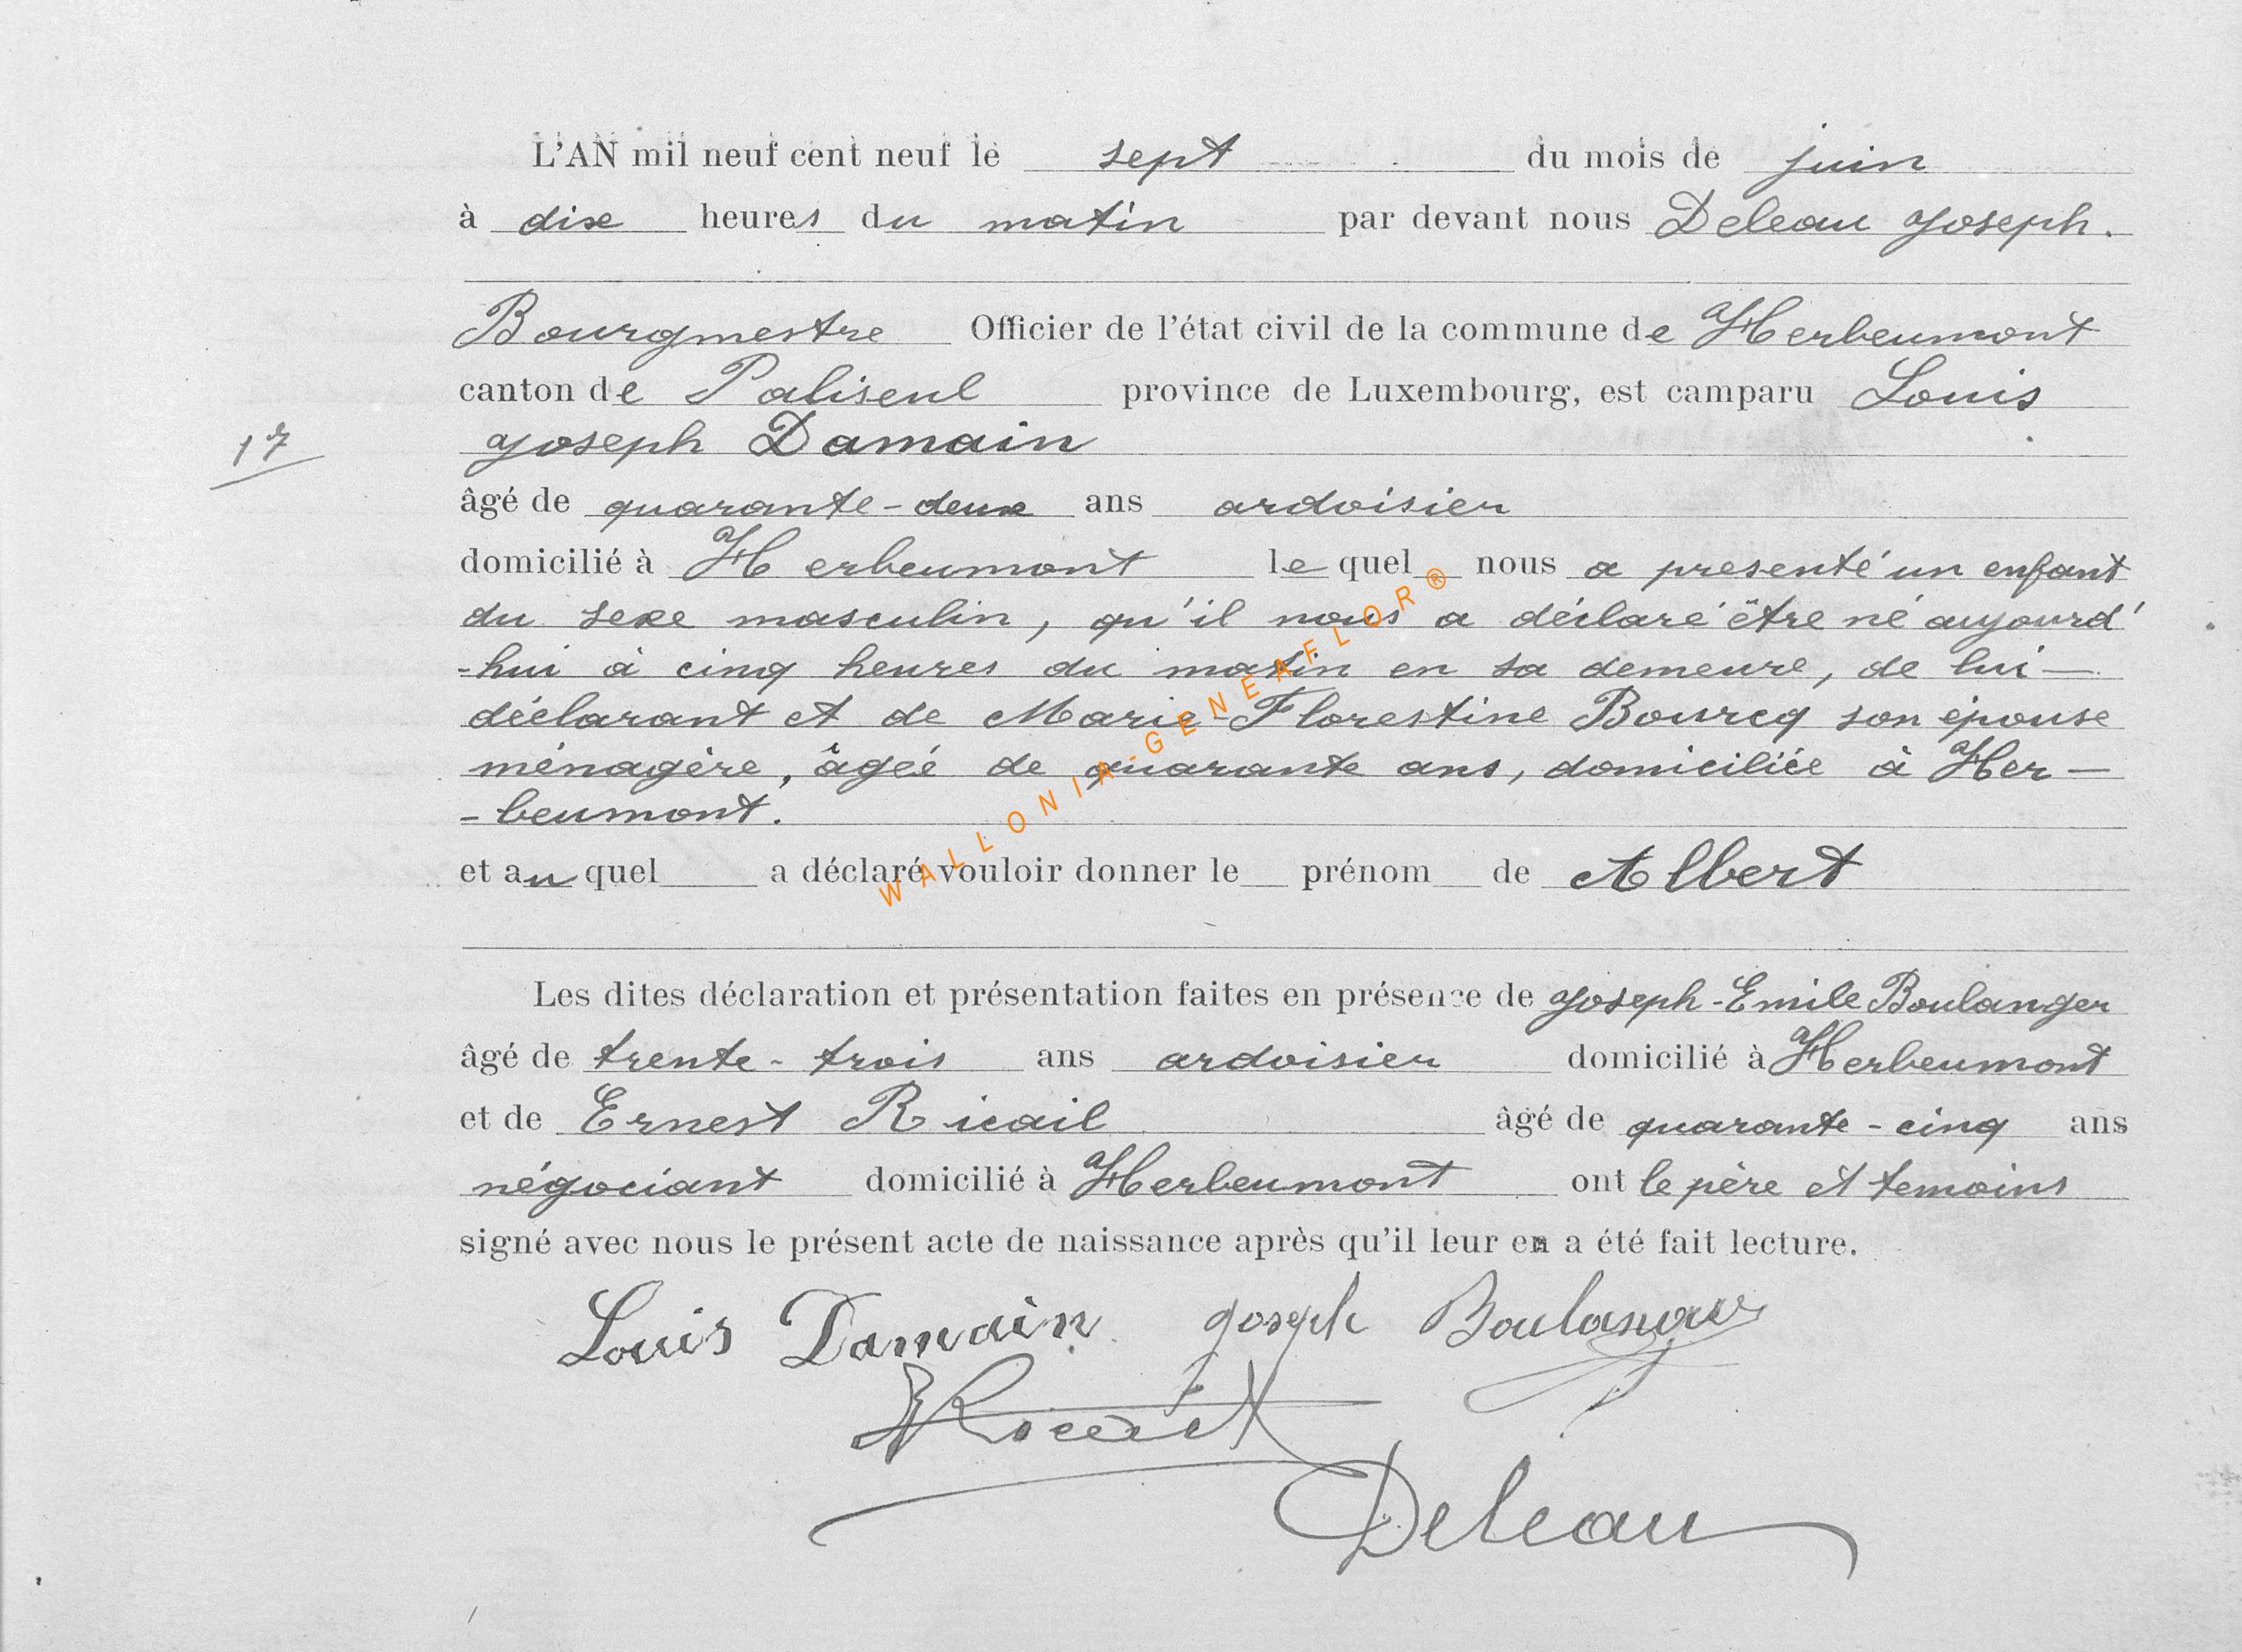 L'AN mil neuf cent neuf le sept du mois de juin
à dix heures du matin par devant nous Deleau Joseph.
Bourgmestre Officier de l'état civil de la commune de Herbeumont
canton de Paliseul province de Luxembourg, est camparu Louis
17
Joseph Damain
âgé de quarante-deux ans ardoisier
domicilié à Herbeumont le quel nous a presenté un enfant
du sexe masculin, qu'il nous a déclaré être né aujourd'
-hui à cinq heures du matin en sa demeure, de lui —
déclarant et de Marie-Florestine Bourcq son épouse
ménagère, âgée de quarante ans, domiciliée à Her—
-beumont.
et au quel a déclaré vouloir donner le prénom de Albert
WALLONIA-GENEAFLOR®
Les dites déclaration et présentation faites en présence de Joseph-Emile Boulanger
âgé de trente-trois ans ardoisier domicilié à Herbeumont
et de Ernest Ricail âgé de quarante-cinq ans
négociant domicilié à Herbeumont ont le père et temoins
signé avec nous le présent acte de naissance après qu'il leur en a été fait lecture.
Louis Damain Joseph Boulanger
Deleau